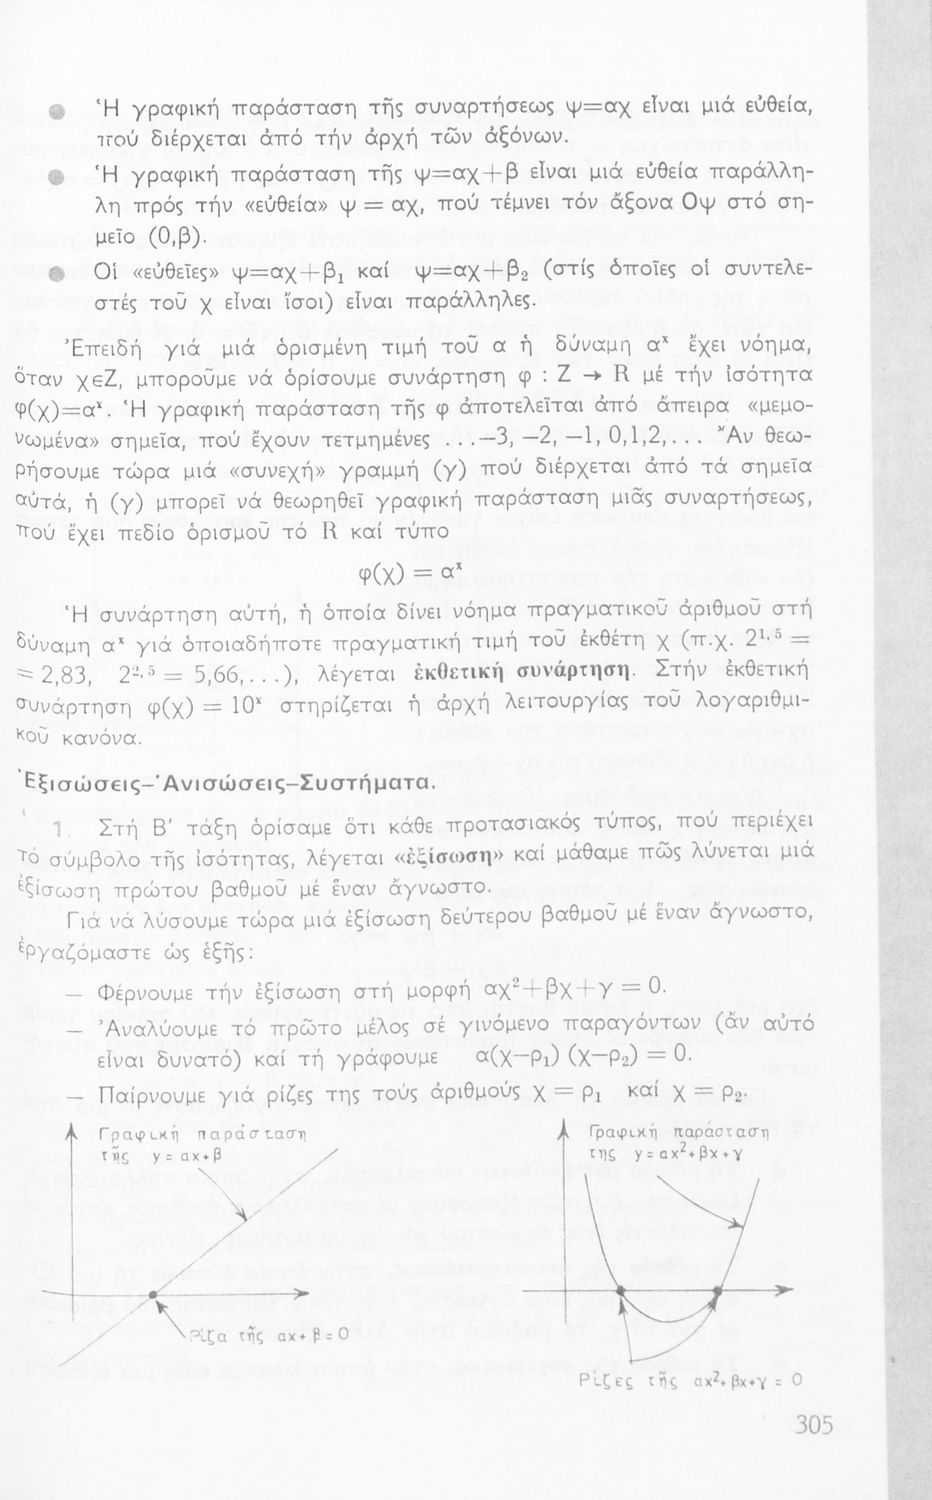 ● Ἡ γραφική παράσταση τῆς συναρτήσεως ψ=αχ εἶναι μιά εὐθεία,
πού διέρχεται ἀπό τήν ἀρχή τῶν ἀξόνων.
● Ἡ γραφική παράσταση τῆς ψ=αχ+β εἶναι μιά εὐθεία παράλλη-
λη πρός τήν «εὐθεία» ψ = αχ, πού τέμνει τόν ἄξονα Οψ στό ση-
μεῖο (0,β).
● Οἱ «εὐθεῖες» ψ=αχ+β₁ καί ψ=αχ+β₂ (στίς ὁποῖες οἱ συντελε-
στές τοῦ χ εἶναι ἴσοι) εἶναι παράλληλες.
Ἐπειδή γιά μιά ὁρισμένη τιμή τοῦ α ἡ δύναμη αˣ ἔχει νόημα,
ὅταν χεΖ, μποροῦμε νά ὁρίσουμε συνάρτηση φ : Ζ → R μέ τήν ἰσότητα
φ(χ)=αˣ. Ἡ γραφική παράσταση τῆς φ ἀποτελεῖται ἀπό ἄπειρα «μεμο-
νωμένα» σημεῖα, πού ἔχουν τετμημένες ...–3, –2, –1, 0,1,2,... Ἄν θεω-
ρήσουμε τώρα μιά «συνεχή» γραμμή (γ) πού διέρχεται ἀπό τά σημεῖα
αὐτά, ἡ (γ) μπορεῖ νά θεωρηθεῖ γραφική παράσταση μιᾶς συναρτήσεως,
πού ἔχει πεδίο ὁρισμοῦ τό R καί τύπο
φ(χ) = αˣ
Ἡ συνάρτηση αὐτή, ἡ ὁποία δίνει νόημα πραγματικοῦ ἀριθμοῦ στή
δύναμη αˣ γιά ὁποιαδήποτε πραγματική τιμή τοῦ ἐκθέτη χ (π.χ. 2¹·⁵ =
= 2,83, 2²·⁵ = 5,66,...), λέγεται ἐκθετική συνάρτηση. Στήν ἐκθετική
συνάρτηση φ(χ) = 10ˣ στηρίζεται ἡ ἀρχή λειτουργίας τοῦ λογαριθμι-
κοῦ κανόνα.
Ἐξισώσεις–Ἀνισώσεις–Συστήματα.
1. Στή Β΄ τάξη ὁρίσαμε ὅτι κάθε προτασιακός τύπος, πού περιέχει
τό σύμβολο τῆς ἰσότητας, λέγεται «ἐξίσωση» καί μάθαμε πῶς λύνεται μιά
ἐξίσωση πρώτου βαθμοῦ μέ ἕναν ἄγνωστο.
Γιά νά λύσουμε τώρα μιά ἐξίσωση δεύτερου βαθμοῦ μέ ἕναν ἄγνωστο,
ἐργαζόμαστε ὡς ἑξῆς:
– Φέρνουμε τήν ἐξίσωση στή μορφή αχ²+βχ+γ = 0.
– Ἀναλύουμε τό πρῶτο μέλος σέ γινόμενο παραγόντων (ἄν αὐτό
εἶναι δυνατό) καί τή γράφουμε α(χ–ρ₁) (χ–ρ₂) = 0.
– Παίρνουμε γιά ρίζες της τούς ἀριθμούς χ = ρ₁ καί χ = ρ₂.
Γραφική παράσταση
τῆς y = αx+β
Ρίζα τῆς αx+β=0
Γραφική παράσταση
της y=αx²+βx+γ
Ρίζες τῆς αx²+βx+γ = 0
305